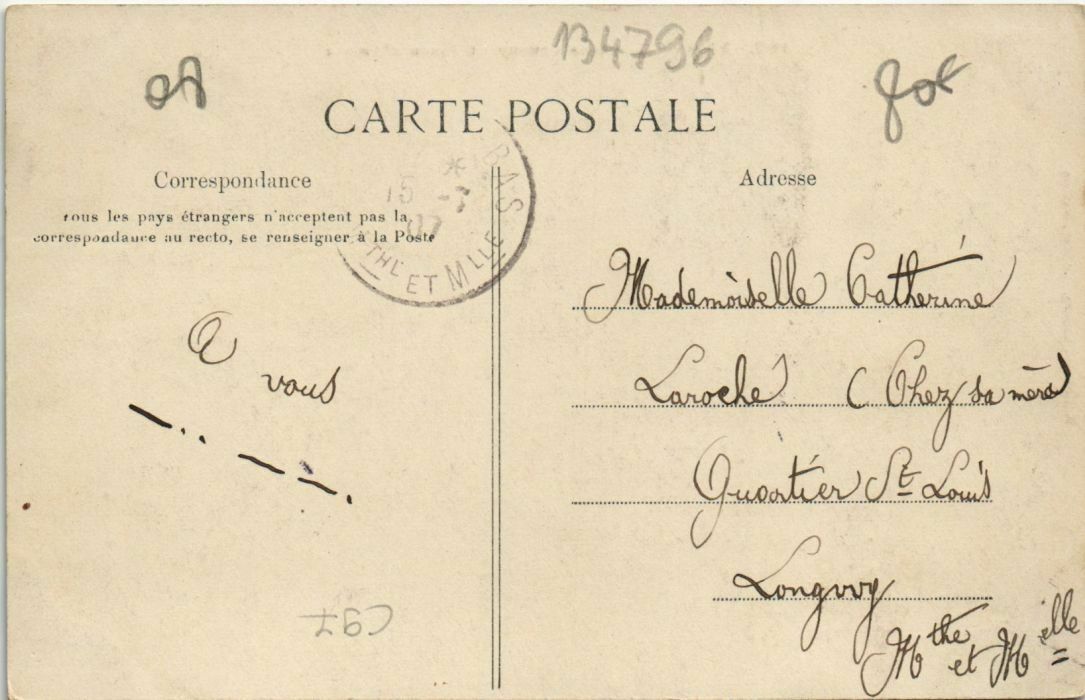 134796
CARTE POSTALE
Correspondance
tous les pays étrangers n'acceptent pas la
correspondance au recto, se renseigner à la Poste
BAS
15 -7
07
THE ET MLLE
A
vous
Adresse
Mademoiselle Catherine
Laroche (Chez sa mère)
Quartier St Louis
Longwy
Mthe et Mlle
C97